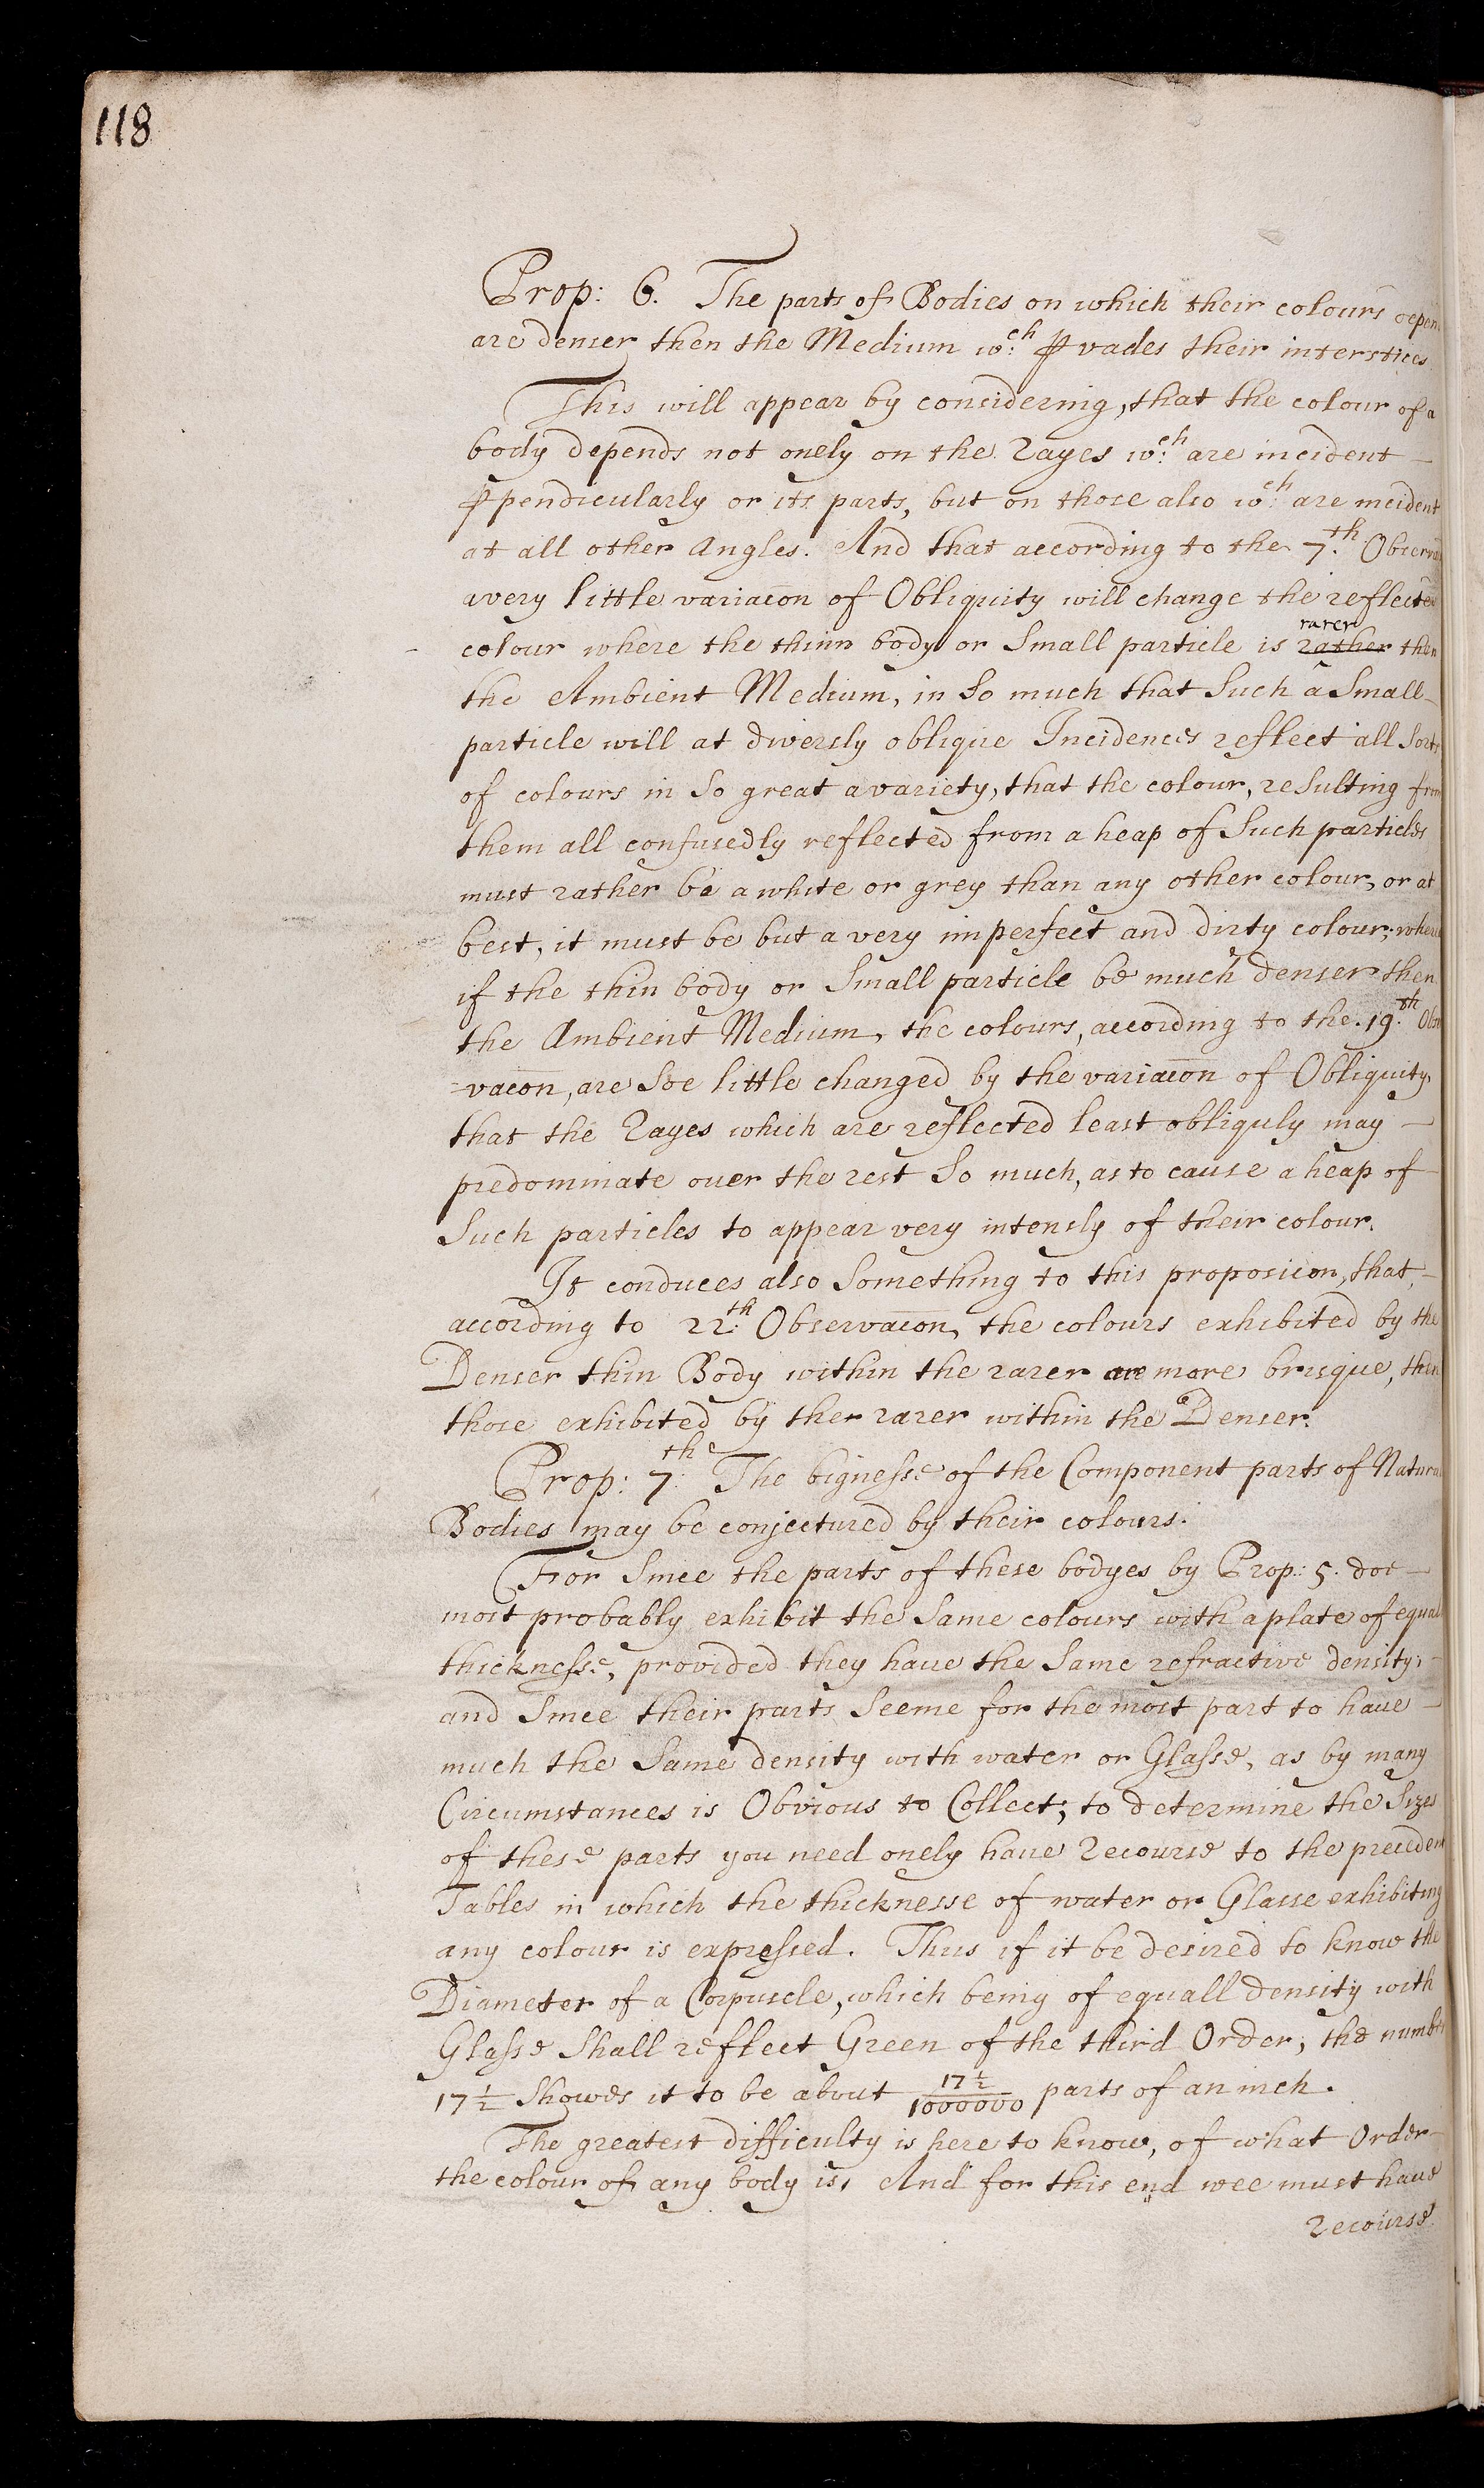 118
Prop: 6. The parts of Bodies on which their colours depen
are denser then the Medium wch. ꝑvades their interstices
This will appear by considering, that the colour of a
body depends not onely on the Rayes wch. are incident –
ꝑpendicularly or its parts, but on those also wch. are incident
at all other Angles. And that according to the 7th. Observa
a very little variac̄on of Obliquity will change the reflected
rarer
colour where the thinn body or Small particle is rather then
the Ambient Medium, in So much that Such a Small –
particle will at diversly oblique Incidences reflect all Sorts
of colours in So great a variety, that the colour, reSulting from
them all confusedly reflected from a heap of Such particles
must rather be a white or grey than any other colour, or at
best, it must be but a very imperfect and dirty colour; where
if the thin body or Small particle be much denser then
the Ambient Medium, the colours, according to the 19.th Obser
=vac̄on, are Soe little changed by the variac̄on of Obliquity,
that the Rayes which are reflected least obliquly may –
predominate ouer the rest So much, as to cause a heap of
Such particles to appear very intensly of their colour.
It conduces also Something to this proposic̄on, that, –
according to 22th. Observac̄on, the colours exhibited by the
Denser thin Body within the rarer are more brisque, then
those exhibited by ther rarer within the Denser.
Prop: 7th. The bignesse of the Component parts of Natural
Bodies may be conjectured by their colours.
For Since the parts of these bodyes by Prop: 5. doe –
most probably exhibit the Same colours with a plate of equall
thicknesse, provided they haue the Same refractive density, –
and Since their parts Seeme for the most part to haue –
much the Same density with water or Glasse, as by many
Circumstances is Obvious to Collect; to determine the Sizes
of these parts you need onely haue Recourse to the preceden
Tables in which the thicknesse of water or Glasse exhibiting
any colour is expressed. Thus if it be desired to know the
Diameter of a Corpuscle, which being of equall density with
Glasse Shall reflect Green of the third Order; the number
17 1/2 Showes it to be about 17 1/2 / 1000000 parts of an inch.
The greatest difficulty is here to know, of what Order –
the colour of any body is, And for this end wee must haue
Recourse